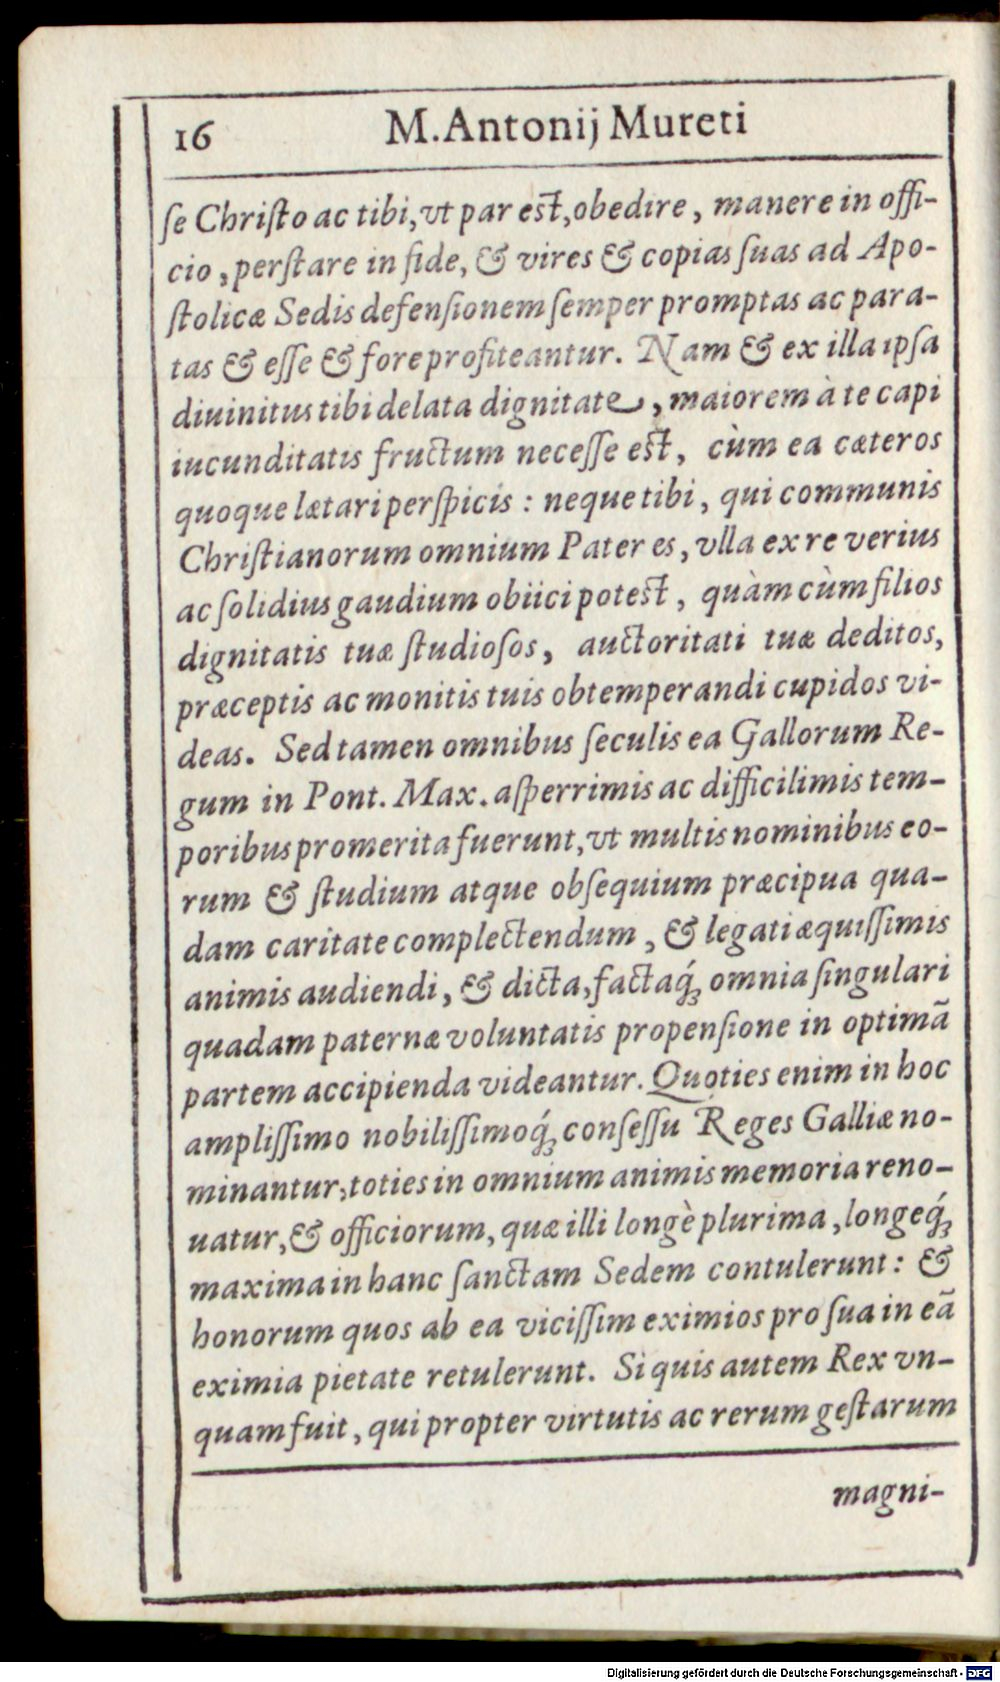 16 M. Antonij Mureti
ſe Chriſto ac tibi, vt par eſt, obedire, manere in offi-
cio, perſtare in fide, & vires & copias ſuas ad Apo-
ſtolicæ Sedis defenſionem ſemper promptas ac para-
tas & eſſe & fore profiteantur. Nam & ex illa ipſa
diuinitus tibi delata dignitate, maiorem à te capi
iucunditatis fructum neceſſe eſt, cùm ea cæteros
quoque lætari perſpicis: neque tibi, qui communis
Chriſtianorum omnium Pater es, vlla ex re verius
ac ſolidius gaudium obiici poteſt, quàm cùm filios
dignitatis tuæ ſtudioſos, auctoritati tuæ deditos,
præceptis ac monitis tuis obtemperandi cupidos vi-
deas. Sed tamen omnibus ſeculis ea Gallorum Re-
gum in Pont. Max. aſperrimis ac difficilimis tem-
poribus promerita fuerunt, vt multis nominibus eo-
rum & ſtudium atque obſequium præcipua qua-
dam caritate complectendum, & legati æquiſſimis
animis audiendi, & dicta, factaq́; omnia ſingulari
quadam paternæ voluntatis propenſione in optimã
partem accipienda videantur. Quoties enim in hoc
ampliſſimo nobiliſſimoq́; conſeſſu Reges Galliæ no-
minantur, toties in omnium animis memoria reno-
uatur, & officiorum, quæ illi longè plurima, longeq́;
maxima in hanc ſanctam Sedem contulerunt: &
honorum quos ab ea viciſſim eximios pro ſua in eã
eximia pietate retulerunt. Si quis autem Rex vn-
quam fuit, qui propter virtutis ac rerum geſtarum
magni-
Digitalisierung gefördert durch die Deutsche Forschungsgemeinschaft - DFG